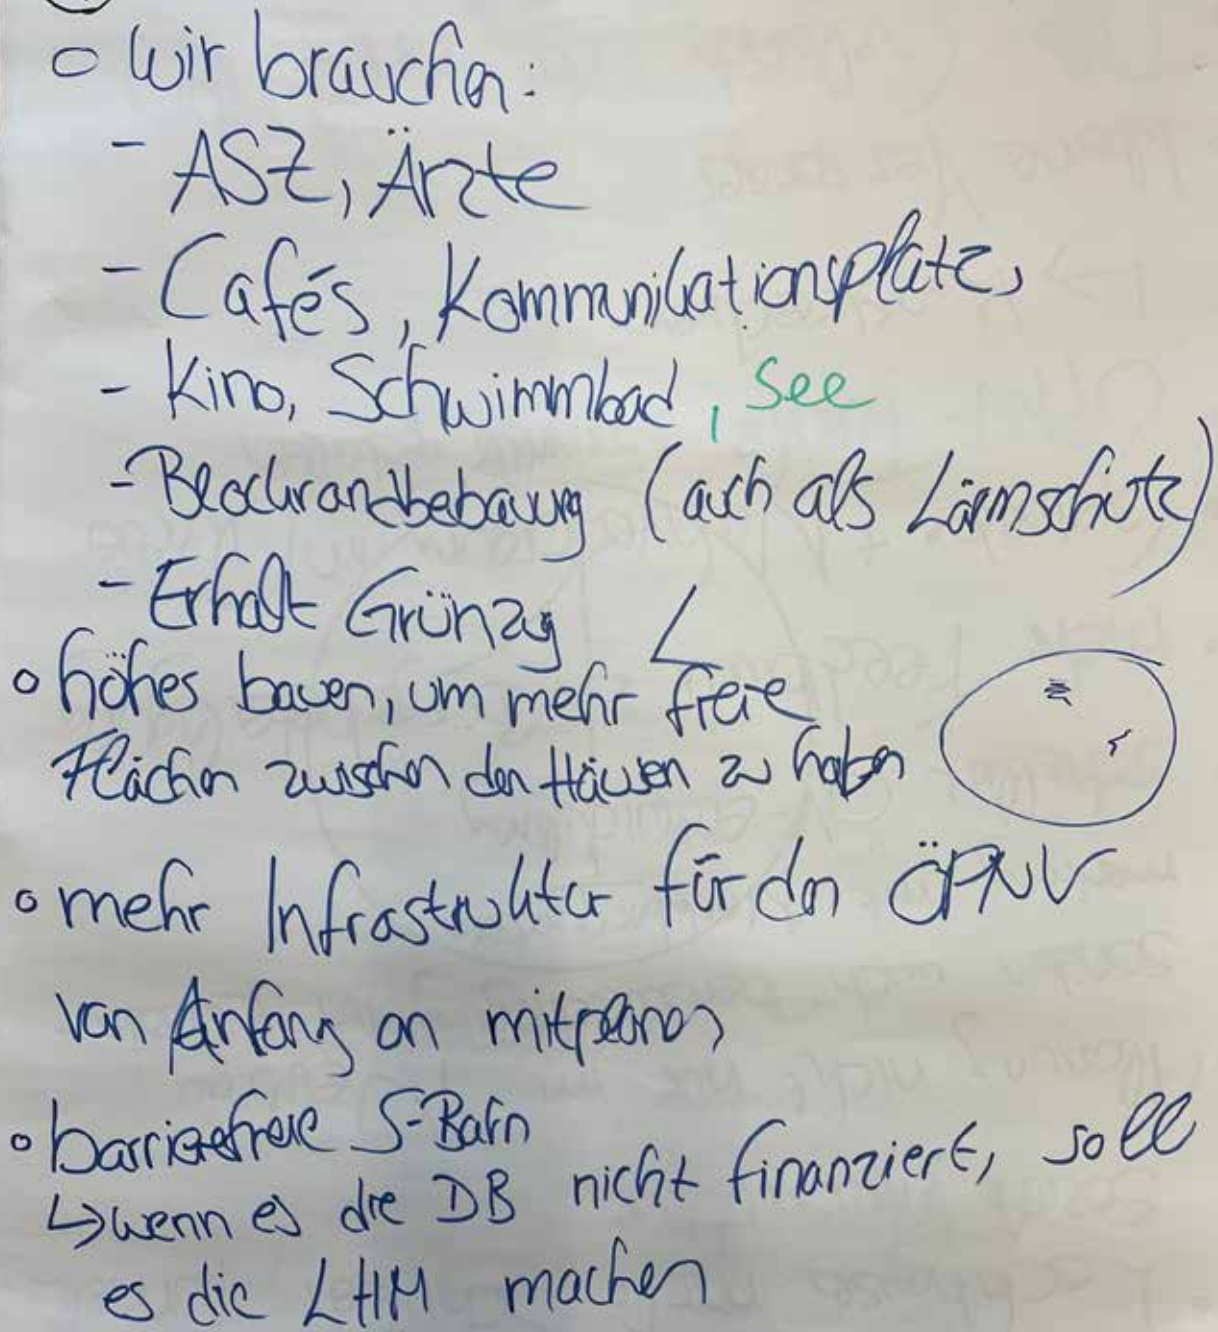 ○ Wir brauchen:
- ASZ, Ärzte
- Cafés, Kommunikationsplatz,
- Kino, Schwimmbad, See
- Blockrandbebauung (auch als Lärmschutz)
- Erhalt Grünzug
○ höhes bauen, um mehr freie
Flächen zwischen den Häusen zu haben
○ mehr Infrastruktur für den ÖPNV
von Anfang an mitplanen
○ barrierefreie S-Bahn
↳ wenn es die DB nicht finanziert, soll
es die LHM machen